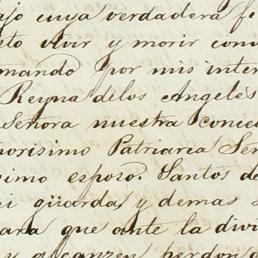 ajo cuya verdadera fe
sto vivir y morir com
mando por mis inter
Reyna delos Angeles
Señora nuestra conceb
orisimo Patriarca Señ
imo esposo. Santos de
i güarda y demas s
ara que ante la divi
y alcanzen perdon d